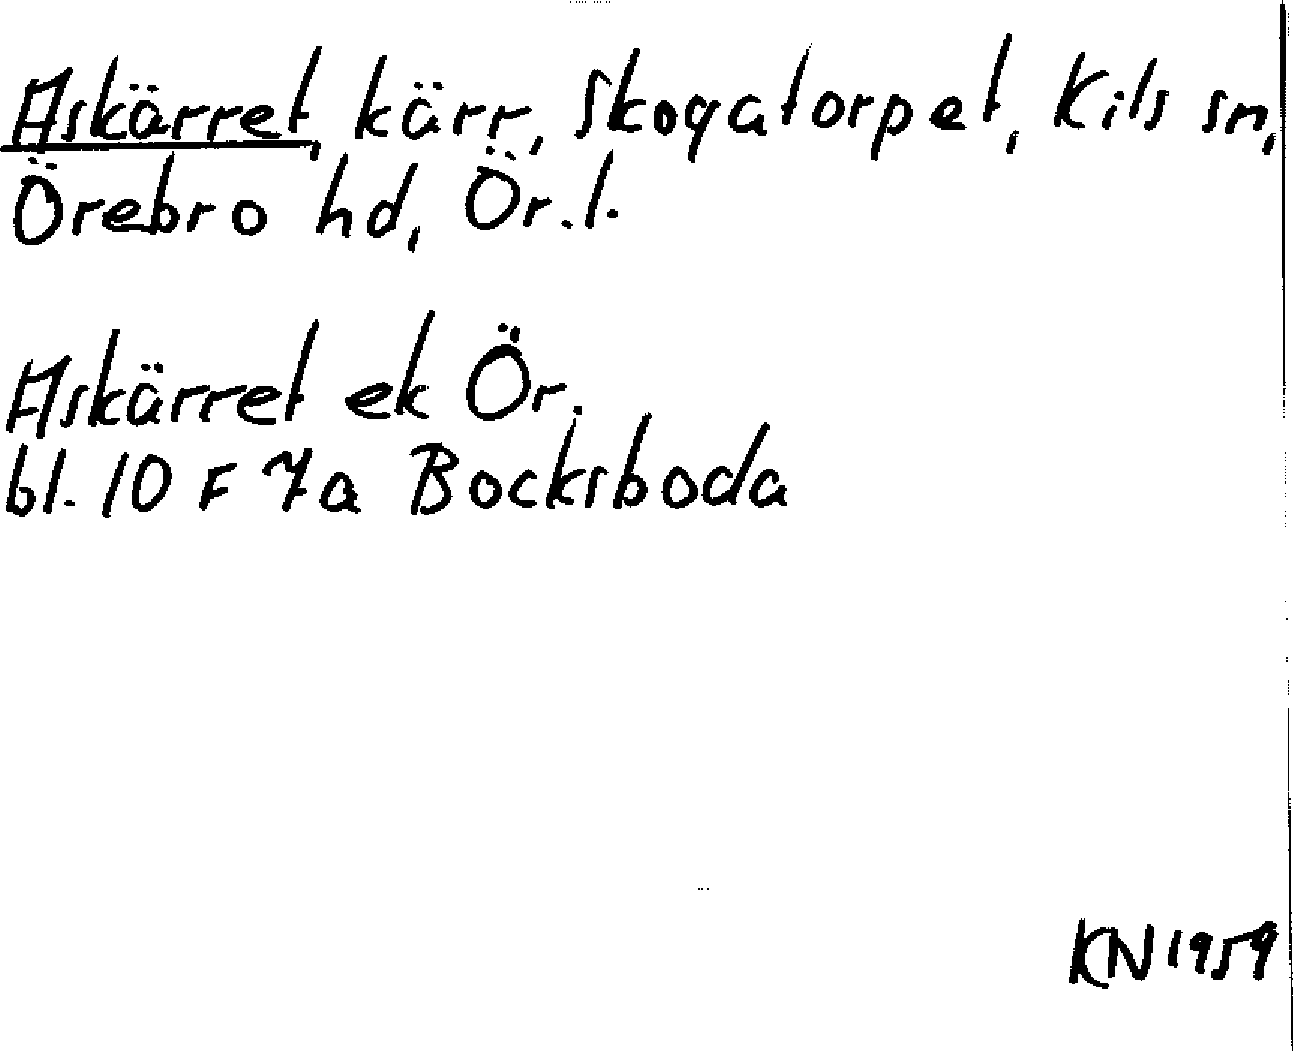 Askärret, kärr, Skogatorpet, Kils sn,
Örebro hd, Ör.l.
Askärret ek Ör.
bl. 10 F 7a Bocksboda
KN 1959